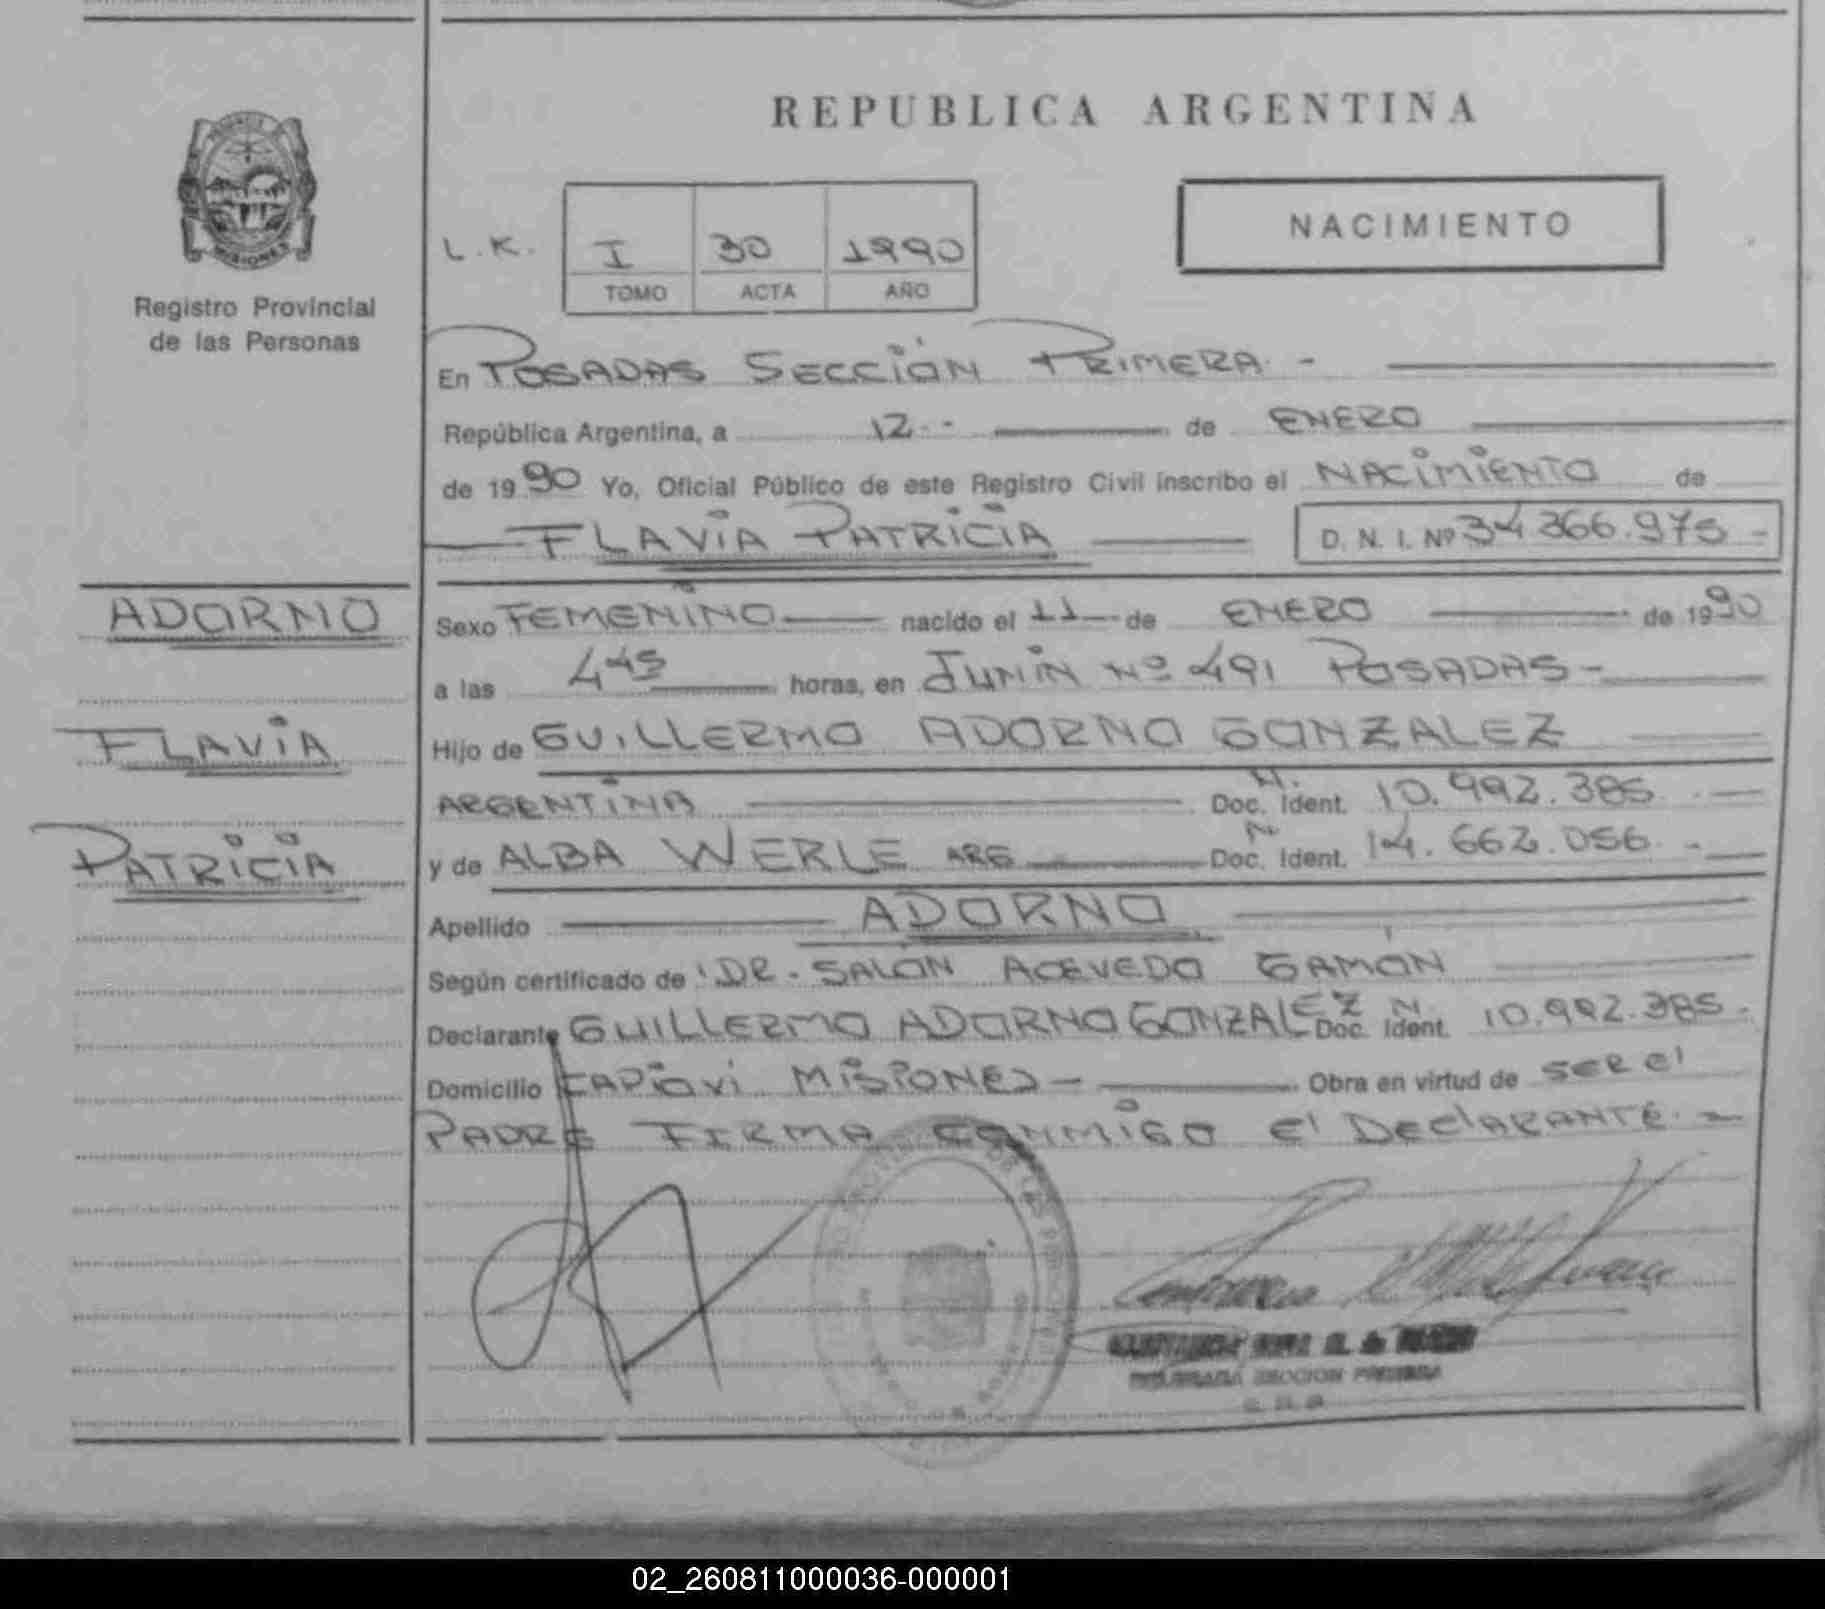 REPUBLICA ARGENTINA
MISIONES
Registro Provincial
de las Personas
NACIMIENTO
L.K. I 30 1990
TOMO ACTA AÑO
En POSADAS SECCIÓN PRIMERA. -
República Argentina, a 12.- de ENERO
de 1990 Yo, Oficial Público de este Registro Civil inscribo el NACIMIENTO de
FLAVIA PATRICIA D. N. I. Nº 34 366.975 -
ADORNO
FLAVIA
PATRICIA
Sexo FEMENINO nacido el 11 de ENERO de 1990
a las 4 45 horas, en JUNIN Nº 491 POSADAS -
Hijo de GUILLERMO ADORNO GONZALEZ
ARGENTINA N. Doc. Ident. 10.992.385
y de ALBA WERLE ARG N Doc. Ident. 14.662.056. -
Apellido ADORNO
Según certificado de DR. SALÓN ACEVEDO GAMÓN
Declarante GUILLERMO ADORNO GONZALEZ N. Doc. Ident. 10.992.385.
Domicilio CAPIOVI MISIONES - Obra en virtud de SER El
PADRE FIRMA CONMIGO El DEClARANTE. -
SECCION PRIMERA
02_260811000036-000001